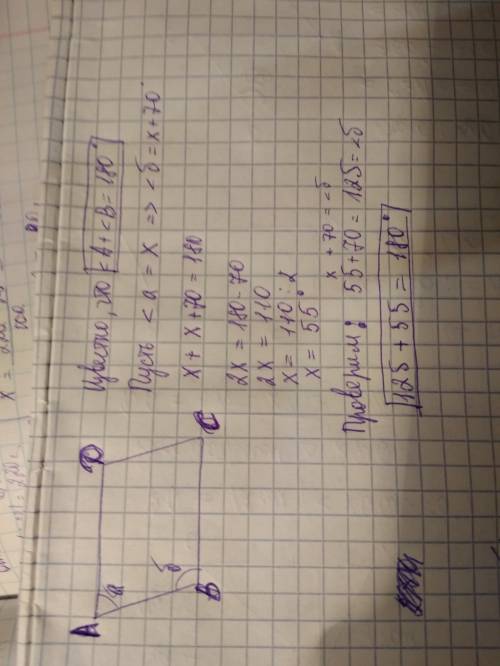 Известно, что <A+<B=180°
Пусть <a = x => <б = x+70°
x + x +70 = 180
2x = 180-70
2x = 110
x = 110:2
x = 55°
x + 70 = <б
Проверим: 55+70 = 125 = <б
125 + 55 = 180°
A
D
a
б
B
C